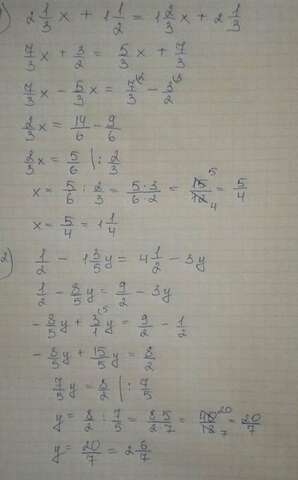 1) 2 1/3 x + 1 1/2 = 1 2/3 x + 2 1/3
7/3 x + 3/2 = 5/3 x + 7/3
7/3 x - 5/3 x = 7/3 - 3/2
2/3 x = 14/6 - 9/6
2/3 x = 5/6 | : 2/3
x = 5/6 : 2/3 = 5·3/6·2 = 15/12 = 5/4
x = 5/4 = 1 1/4
2) 1/2 - 1 3/5 y = 4 1/2 - 3y
1/2 - 8/5 y = 9/2 - 3y
- 8/5 y + 3/1 y = 9/2 - 1/2
- 8/5 y + 15/5 y = 8/2
7/5 y = 8/2 | : 7/5
y = 8/2 : 7/5 = 8·5/2·7 = = 20/7
y = 20/7 = 2 6/7